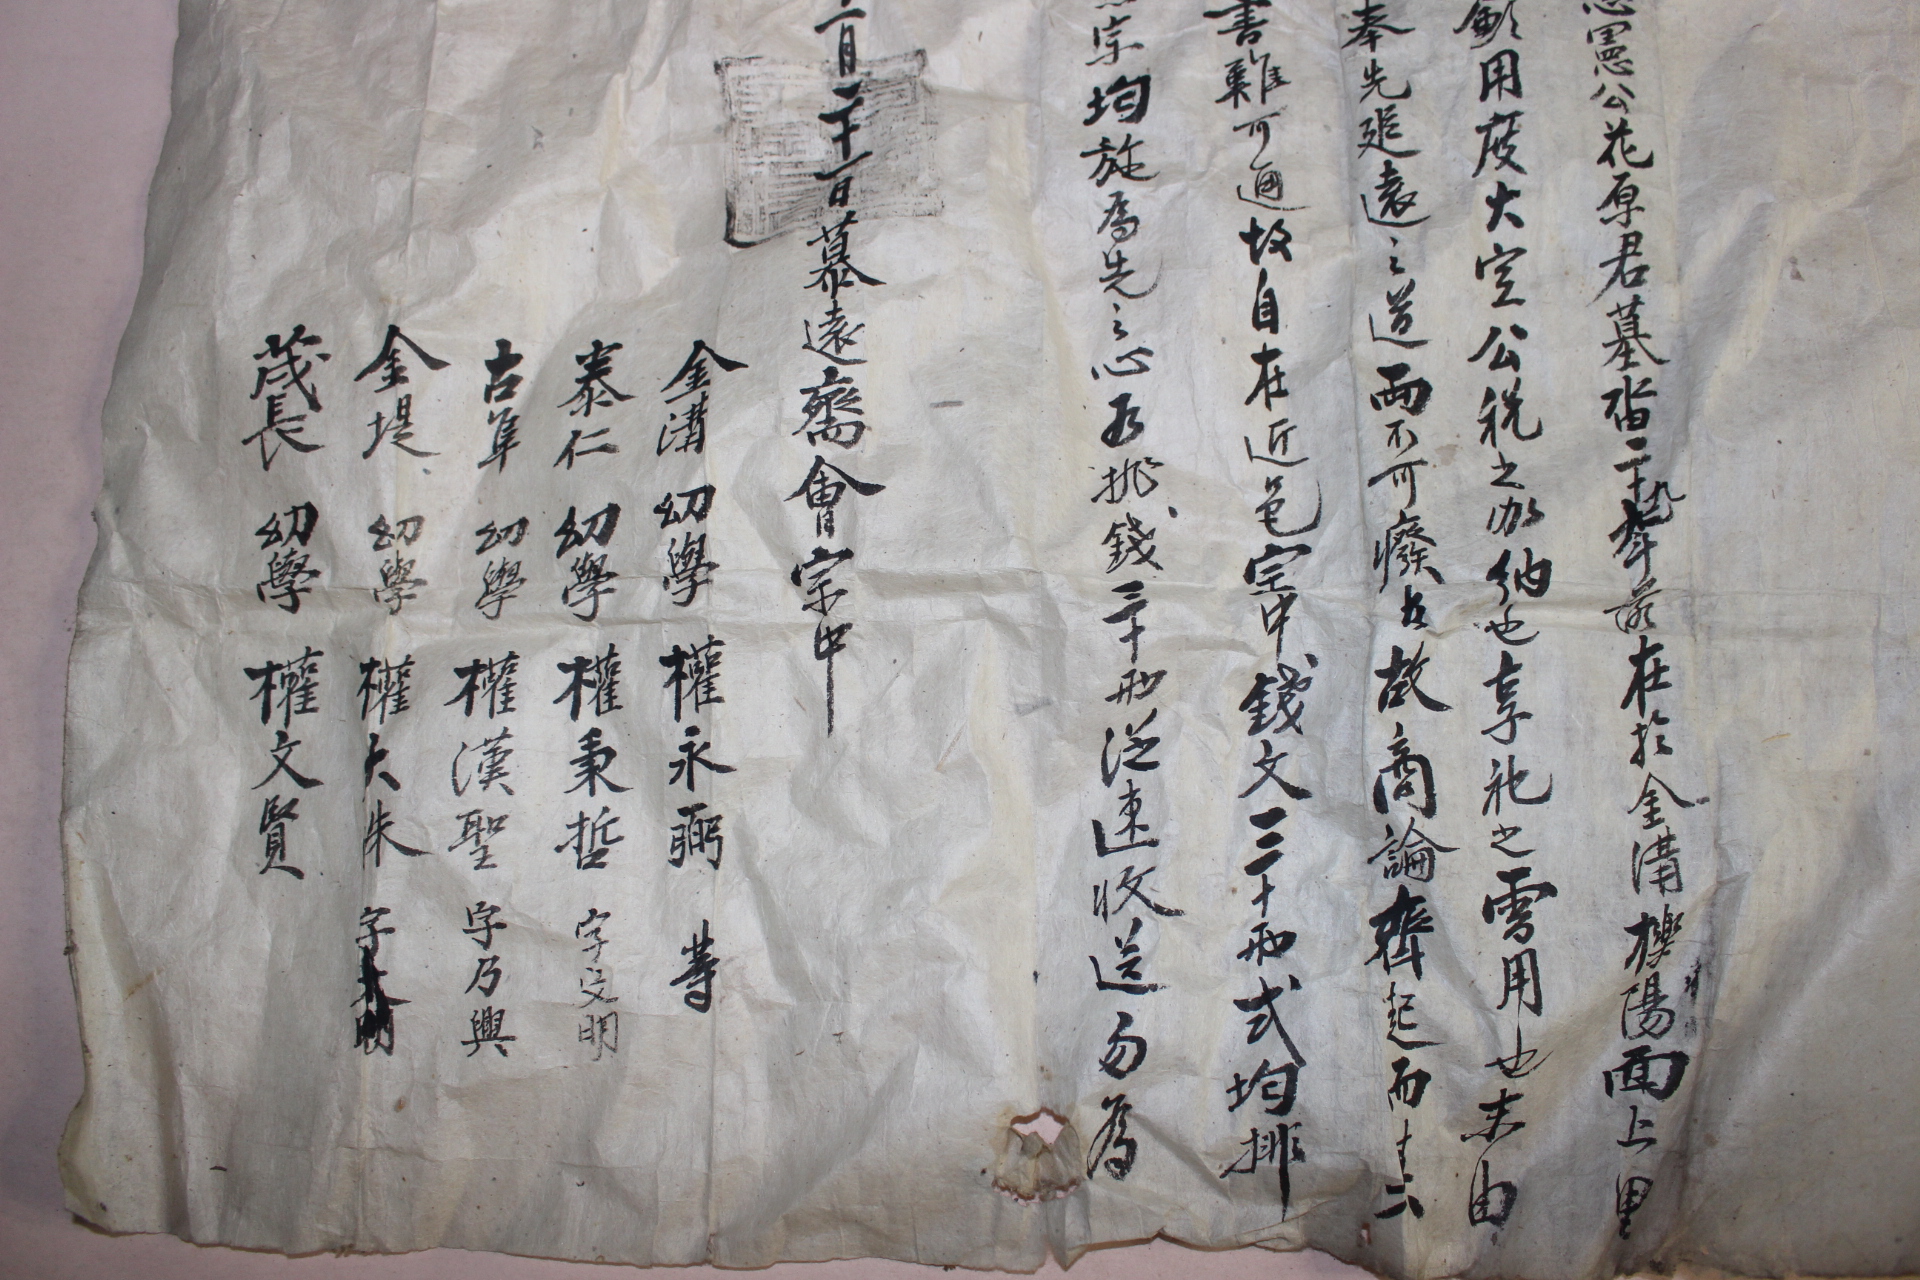 憲公花原君墓畓二十九斗落在於金溝櫟陽面上里
用度大宗公稅之加納也享祀之需用也末由
奉先追遠之道而不可廢古故商論齊起而十六
書難可通故自在近邑宗中錢文三十兩式均排
宗均施爲先之心 排錢三十兩從速收送勿爲
二月二十一日慕遠齋會宗中
金溝 幼學 權永弼 等
泰仁 幼學 權秉哲 字文明
古阜 幼學 權漢聖 字乃興
金堤 幼學 權大朱 字
茂長 幼學 權文賢